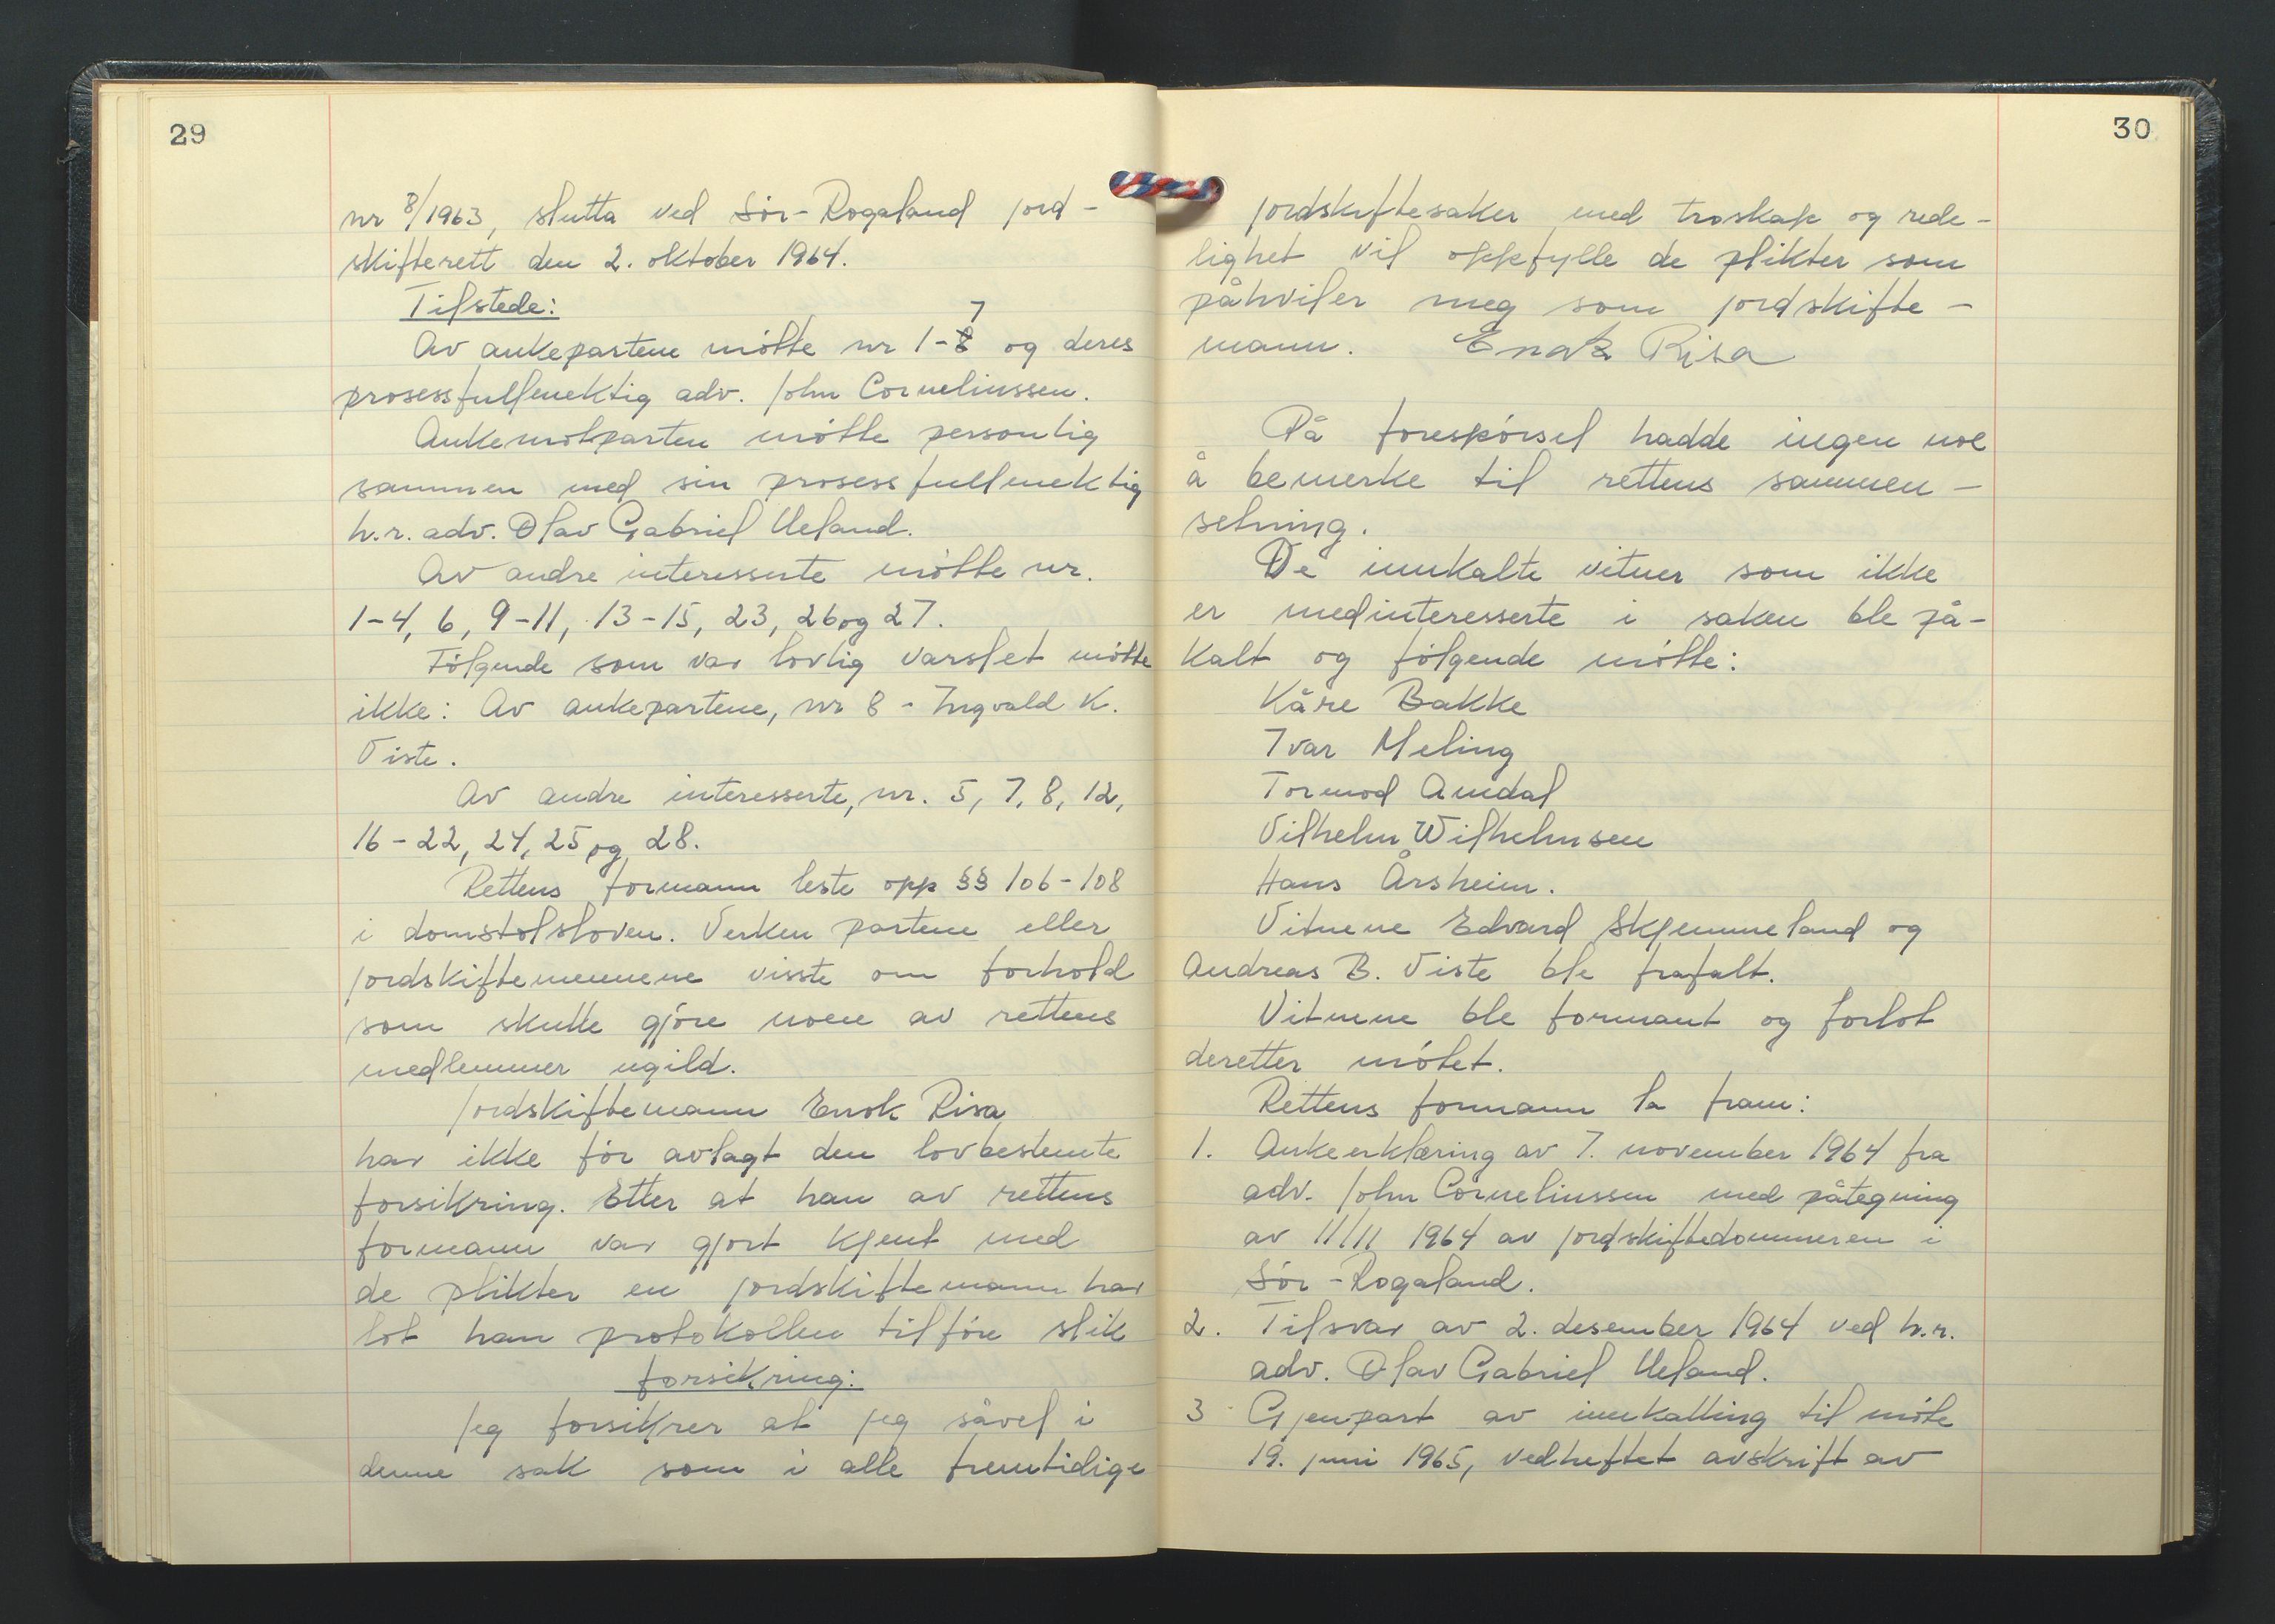 29
nr 8/1963, slutta ved Sór-Rogaland jord-
skifterett den 2. oktober 1964.
Tilstede:
7
Av ankepartene mótte nr 1-8 og deres
prosessfullmektig adv. John Corneliussen.
Ankemotparten mótte personlig
sammen med sin prosessfullmektig
h.r. adv. Olav Gabriel Ueland.
Av andre interesserte mótte nr.
1-4, 6, 9-11, 13-15, 23, 26 og 27.
Fólgende som var lovlig varslet mótte
ikke: Av ankepartene, nr 8 - Ingvald K.
Viste.
Av andre interesserte, nr. 5, 7, 8, 12,
16-22, 24, 25 og 28.
Rettens formann leste opp §§ 106-108
i domstolsloven. Verken partene eller
jordskiftemennene visste om forhold
som skulle gjóre noen av rettens
medlemmer ugild.
Jordskiftemann Enok Risa
har ikke fór avlagt den lovbestemte
forsikring. Etter at han av rettens
formann var gjort kjent med
de plikter en jordskiftemann har
lot han protokollen tilfóre slik
forsikring:
Jeg forsikrer at jeg såvel i
denne sak som i alle fremtidige
30
jordskiftesaker med troskap og rede-
lighet vil oppfylle de plikter som
påhviler meg som jordskifte-
mann. Enok Risa
På forespórsel hadde ingen noe
å bemerke til rettens sammen-
setning.
De innkalte vitner som ikke
er medinteresserte i saken ble på-
kalt og fólgende mótte:
Kåre Bakke
Ivar Meling
Tormod Amdal
Vilhelm Wilhelmsen
Hans Årsheim.
Vitnene Edvard Skjemmeland og
Andreas B. Viste ble frafalt.
Vitnene ble formant og forlot
deretter mótet.
Rettens formann la fram:
1. Ankeerklæring av 7. november 1964 fra
adv. John Corneliussen med påtegning
av 11/11 1964 av jordskiftedommeren i
Sór-Rogaland.
2. Tilsvar av 2. desember 1964 ved h.r.
adv. Olav Gabriel Ueland.
3 Gjenpart av innkalling til móte
19. juni 1965, vedheftet avskrift av